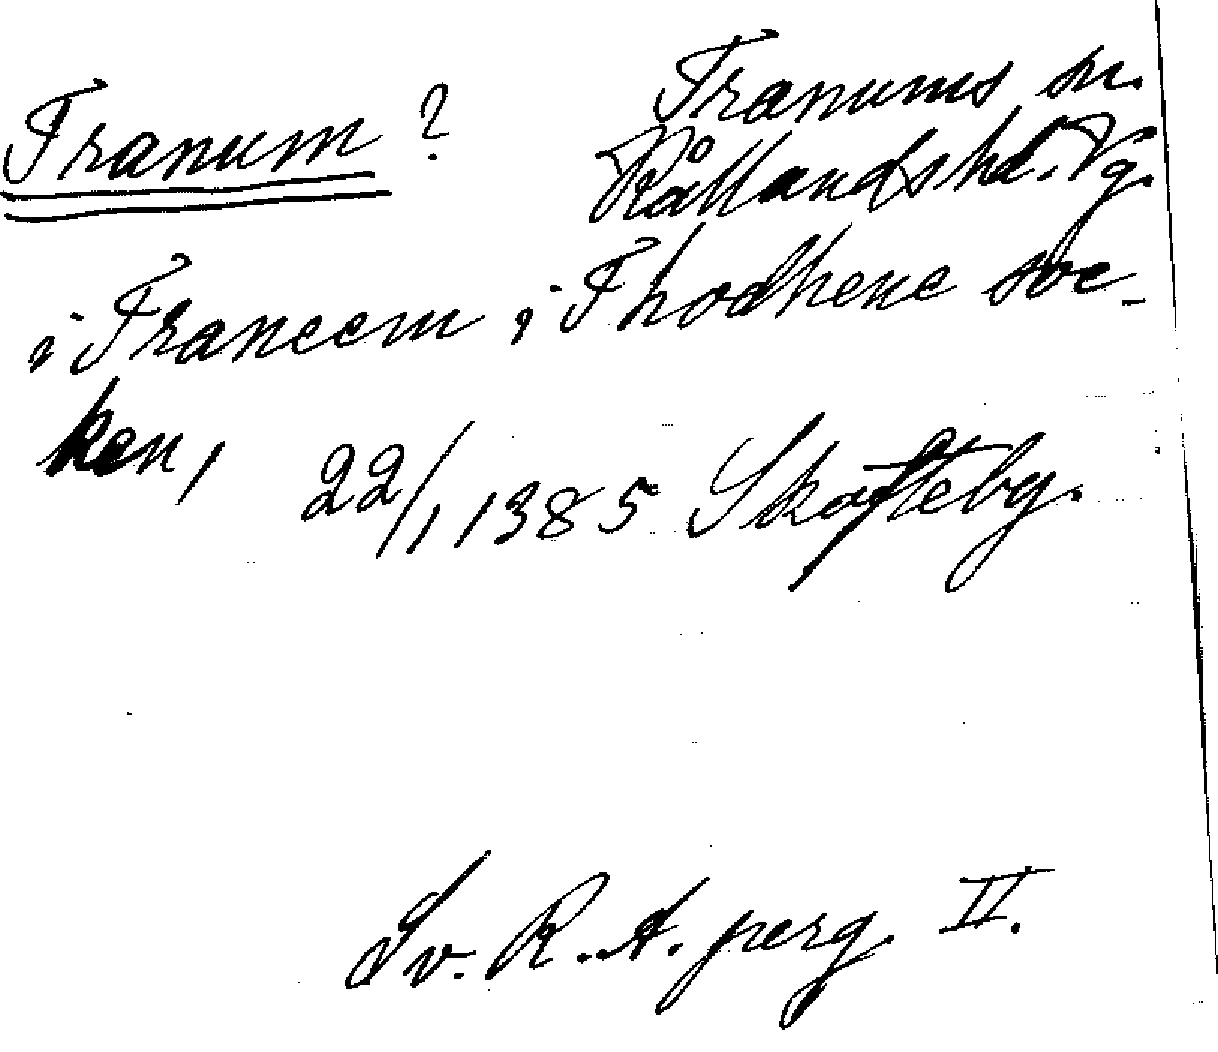 Tranum ?
Tranums sn.
Kållands hd. Vg.
i Traneem, i Thodhene soc-
ken, 22/1 1385 Skofteby.
Sv. R. A. perg. II.